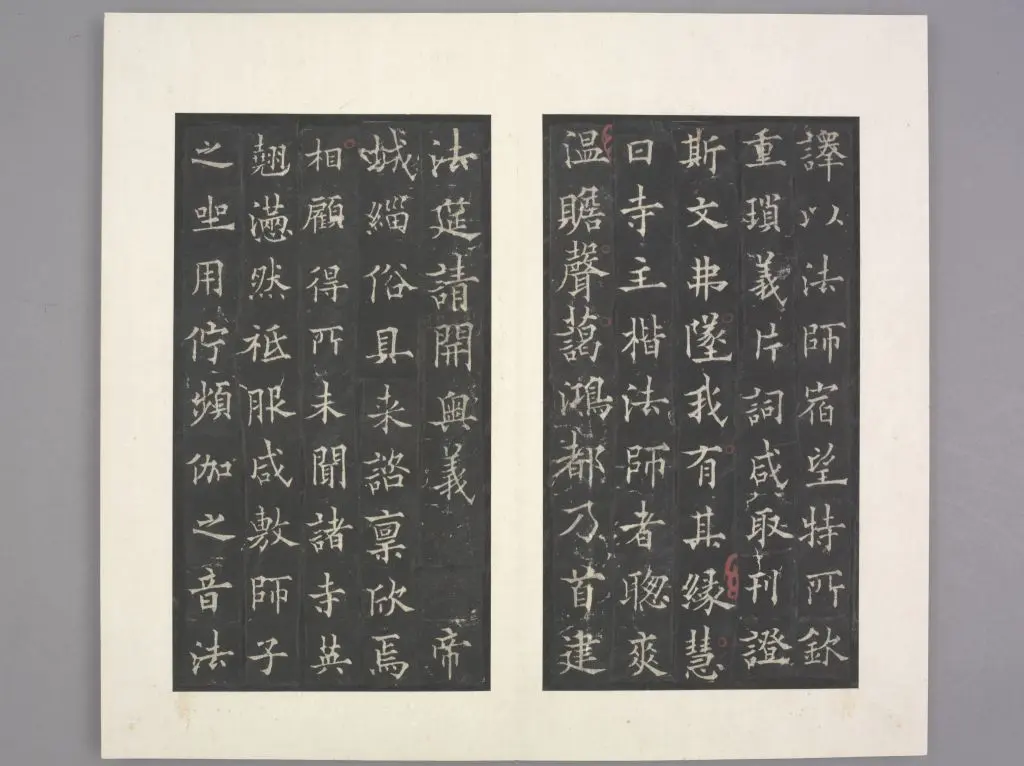 譯以法師宿望特所欽
重瑣義片詞咸取刊證
斯文弗墜我有其緣慧
日寺主楷法師者聰爽
温瞻聲藹鴻都乃首建
法筵請開奧義 帝
城緇俗具来諮稟欣焉
相顧得所未聞諸寺英
翹懣然祗服咸敷師子
之坐用佇頻伽之音法